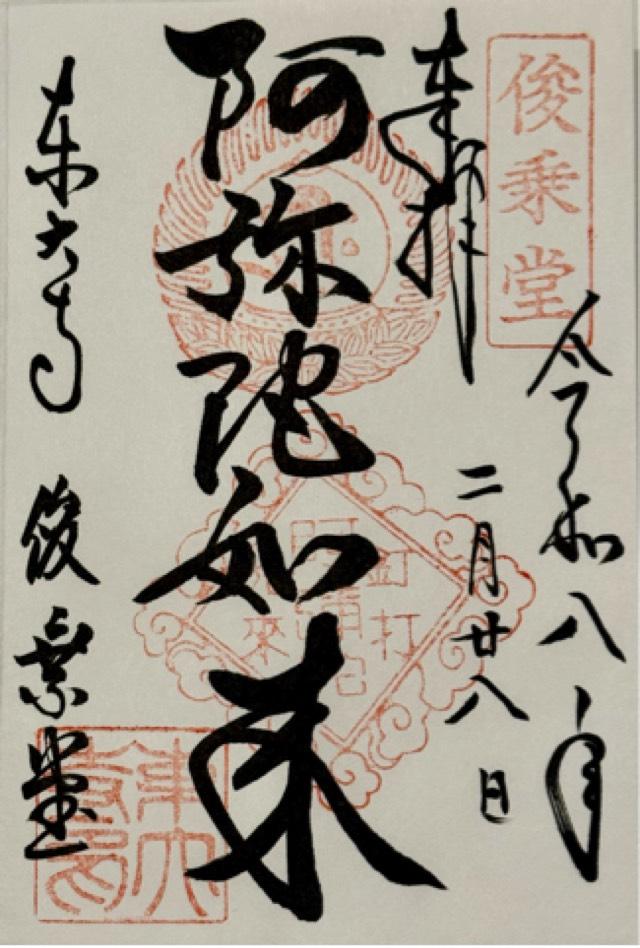 俊乗堂
令和八年
二月廿八日
奉拝
阿弥陀如来
東大寺 俊乗堂